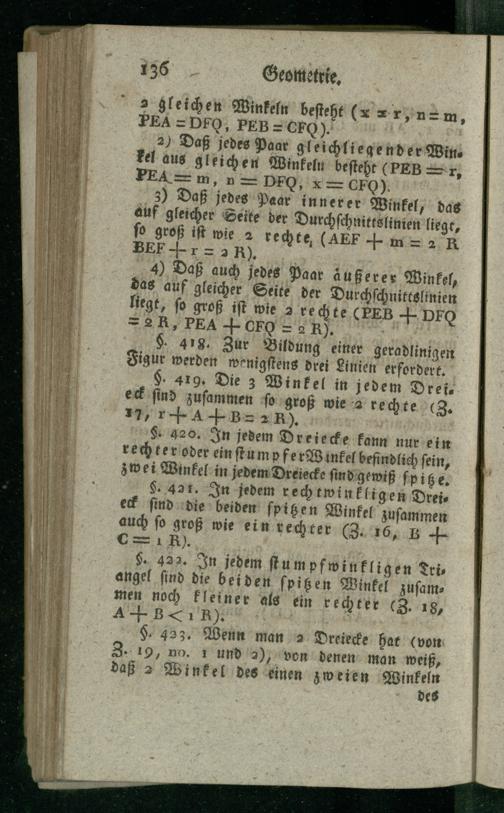 136 Geometrie.
2 gleichen Winkeln besteht (x = r, n = m,
PEA = DFQ, PEB = CFQ).
2) Daß jedes Paar gleichliegender Win-
kel aus gleichen Winkeln besteht (PEB = r,
PEA = m, n = DFQ, x = CFQ).
3) Daß jedes Paar innerer Winkel, das
auf gleicher Seite der Durchschnittslinien liegt,
so groß ist wie 2 rechte, (AEF + m = 2 R
BEF + r = 2 R).
4) Daß auch jedes Paar äußerer Winkel,
das auf gleicher Seite der Durchschnittslinien
liegt, so groß ist wie 2 rechte (PEB + DFQ
= 2 R, PEA + CFQ = 2 R).
§. 418. Zur Bildung einer geradlinigen
Figur werden wenigstens drei Linien erfordert.
§. 419. Die 3 Winkel in jedem Drei-
eck sind zusammen so groß wie 2 rechte (Z.
17, r + A + B = 2 R).
§. 420. In jedem Dreiecke kann nur ein
rechter oder ein stumpfer Winkel befindlich sein,
zwei Winkel in jedem Dreiecke sind gewiß spitze.
§. 421. In jedem rechtwinkligen Drei-
eck sind die beiden spitzen Winkel zusammen
auch so groß wie ein rechter (Z. 16, B +
C = 1 R).
§. 422. In jedem stumpfwinkligen Tri-
angel sind die beiden spitzen Winkel zusam-
men noch kleiner als ein rechter (Z. 18,
A + B < 1 R).
§. 423. Wenn man 2 Dreiecke hat (von
Z. 19, no. 1 und 2), von denen man weiß,
daß 2 Winkel des einen zweien Winkeln
des